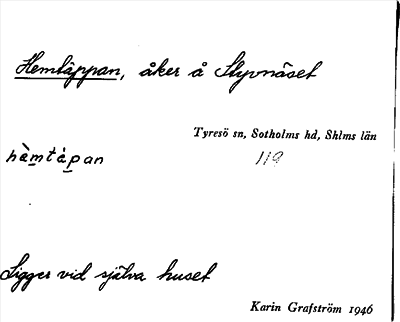 Hemtäppan, åker å Styvnäset
Tyresö sn, Sotholms hd, Sthlms län
hèmtápan 119
Ligger vid själva huset
Karin Grafström 1946